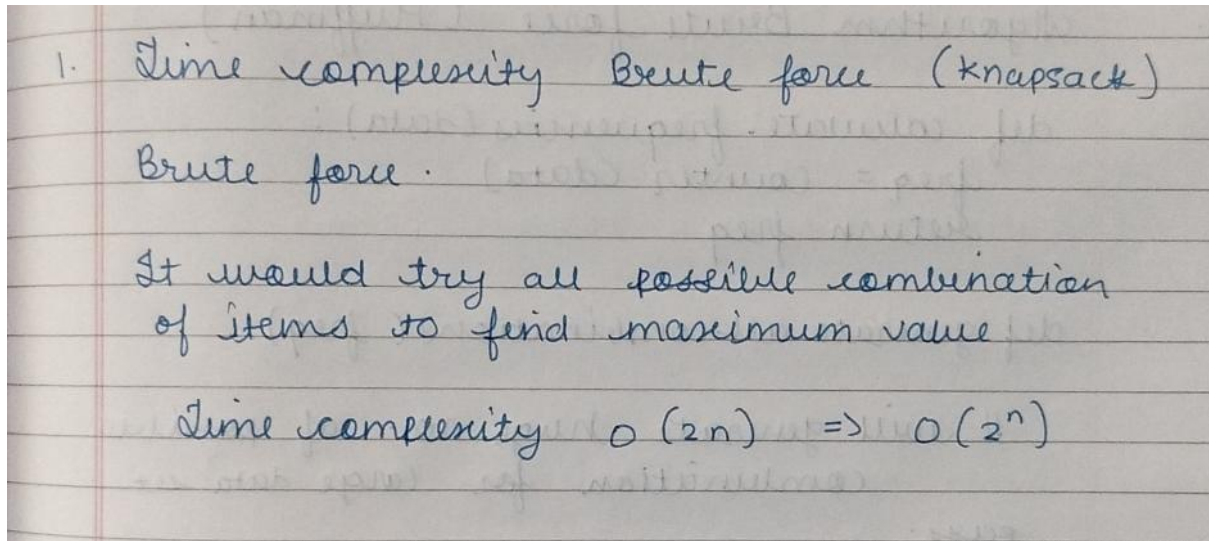 1. Time complexity Brute force (Knapsack)
Brute force.
It would try all possible combination
of items to find maximum value
Time complexity O (2n) => O(2ⁿ)